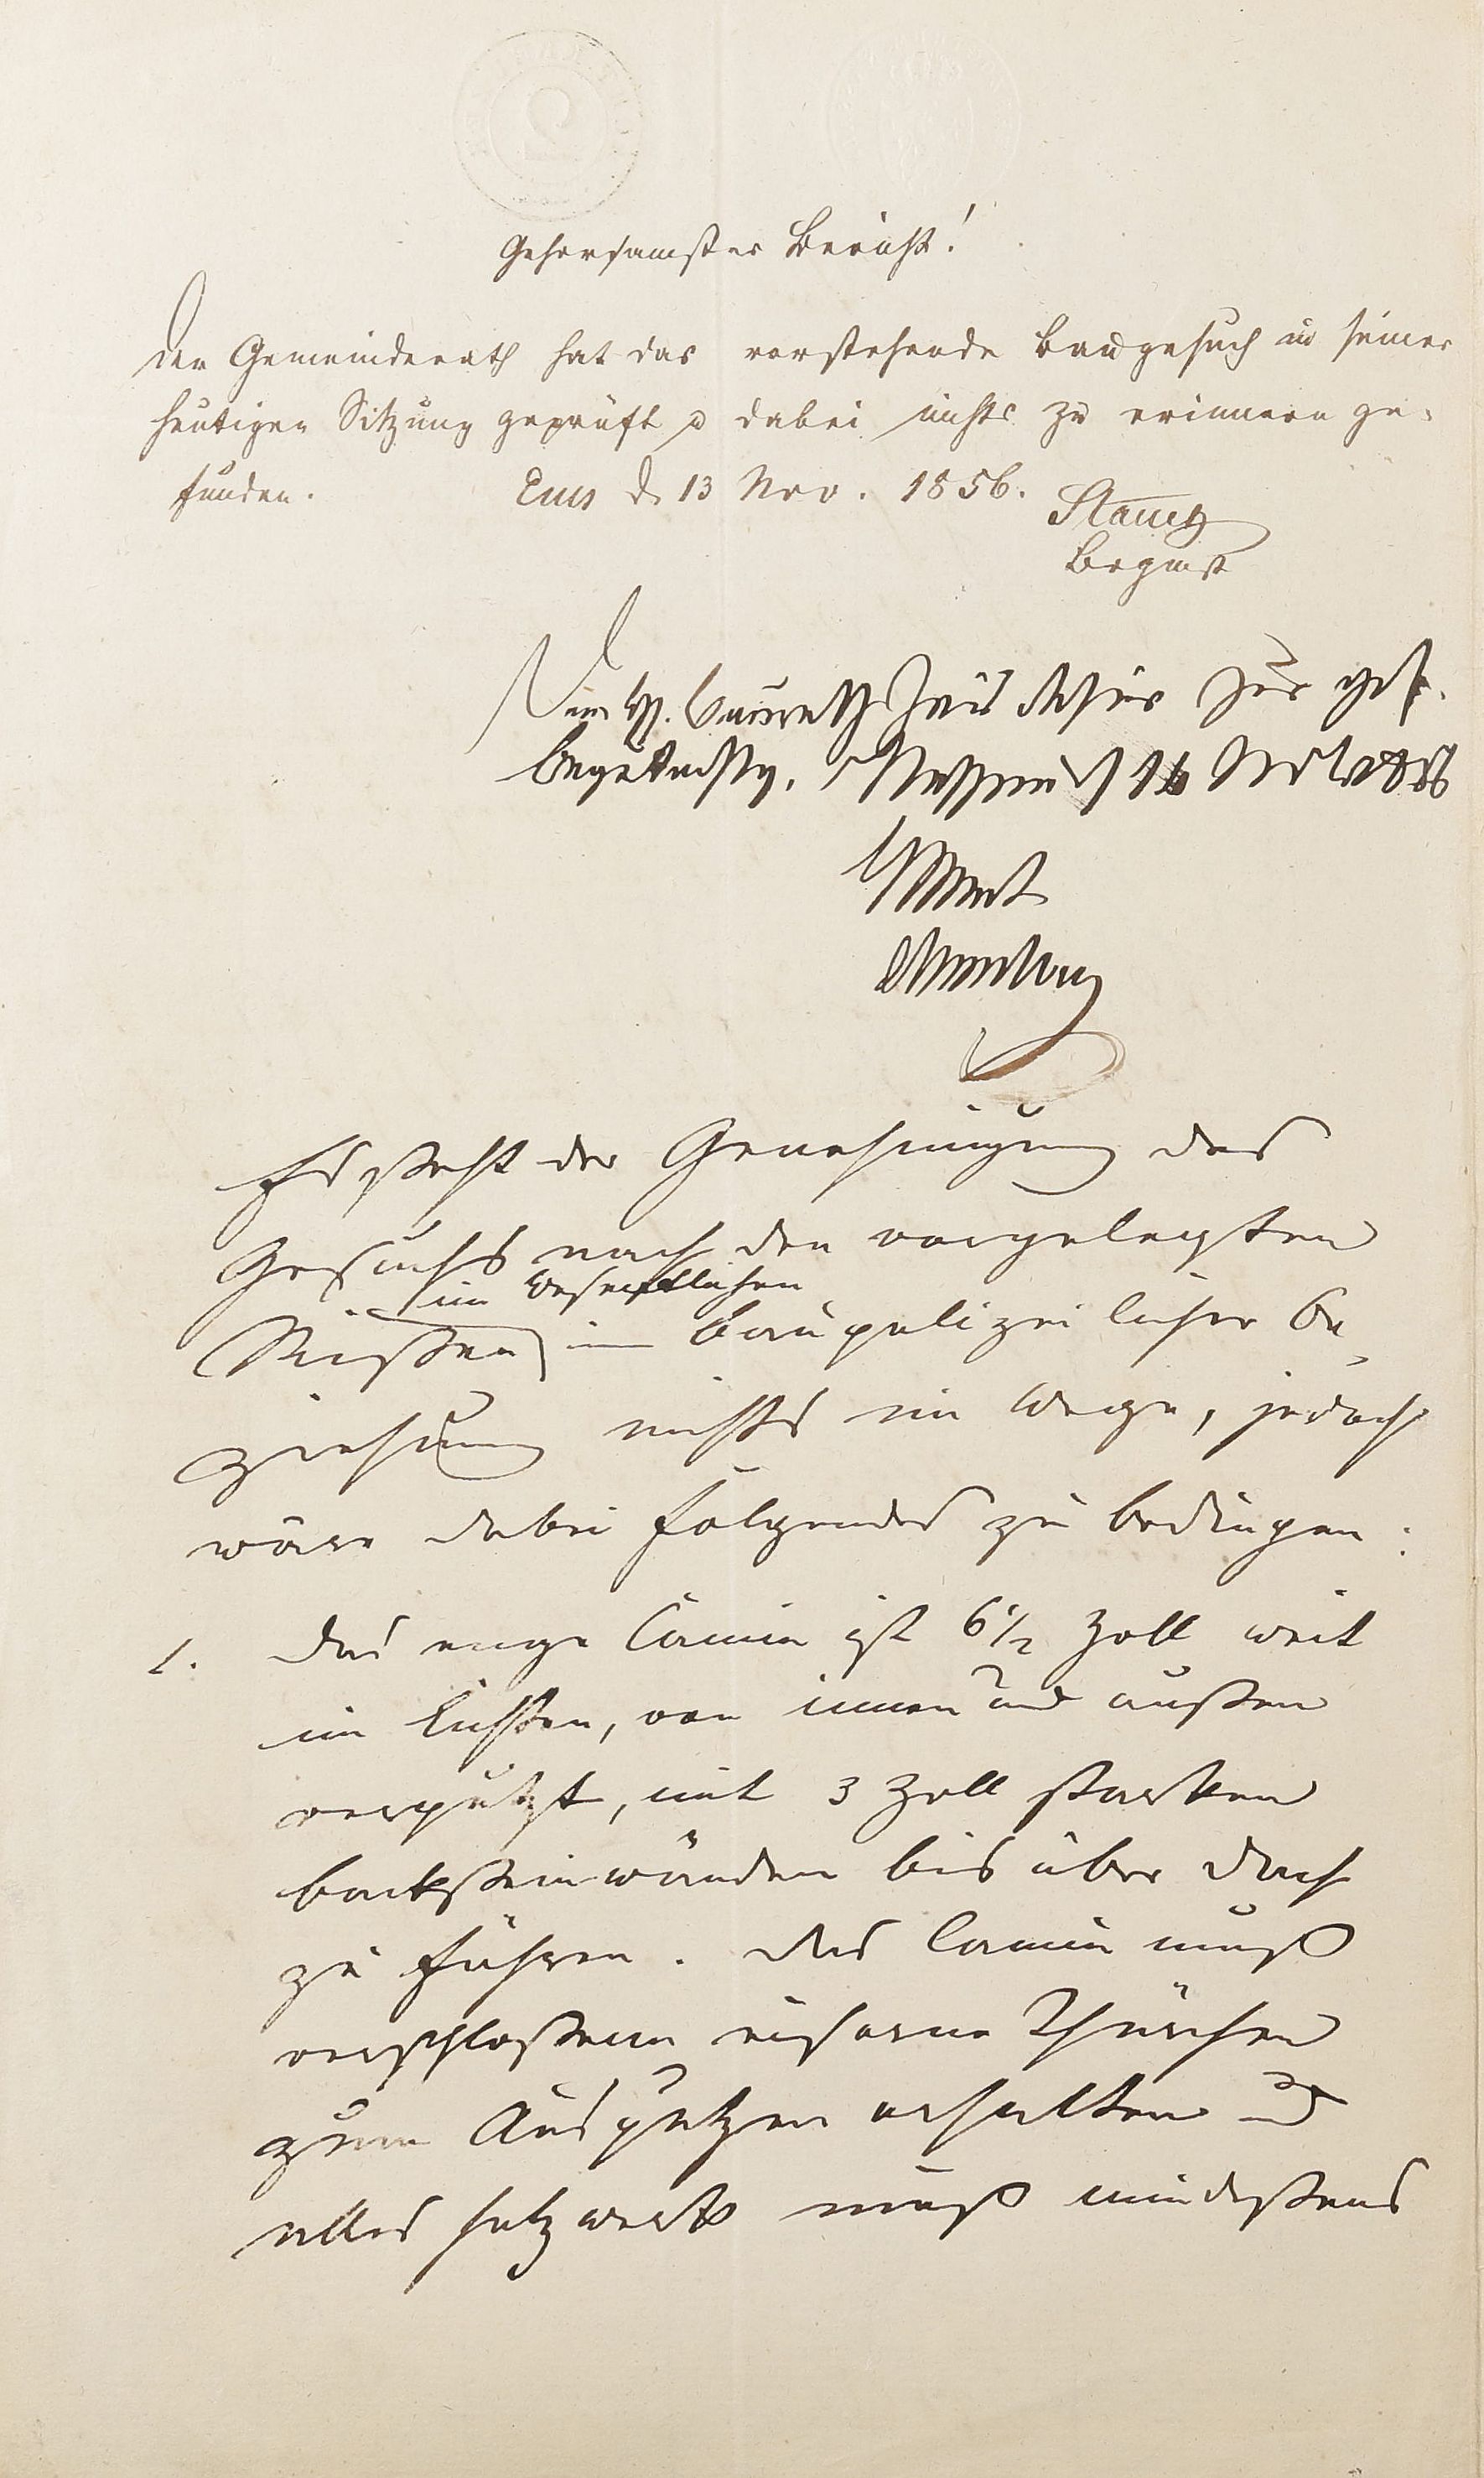 Gehorsamster Bericht!
Der Gemeinderath hat das vorstehende Baugesuch in seiner
heutigen Sitzung geprüft u dabei nichts zu erinnern ge-
funden. Ems d. 13 Nov. 1856.
Brgmst
Baurath zur gef.
Begutachtg. Nassau d 16 Novbr
Es steht der Genehmigung des
Gesuchs nach den vorgelegten
im Wesentlichen
Rissen in baupolizeilicher Be-
ziehung nichts im Wege, jedoch
wäre dabei Folgendes zu bedingen:
1. Das enge Camin ist 6 1/2 Zoll weit
im Lichten, von innen und außen
verputzt, mit 3 Zoll starken
Backsteinwänden bis über Dach
zu führen. Das Camin muß
verschlossene eiserne Thürchen
zum Ausputzen erhalten und
alles Holzwerk muß mindestens